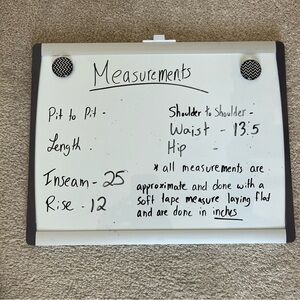 Measurements
Pit to Pit -
Length .
Inseam - 25
Rise - 12
Shoulder to Shoulder -
Waist - 13.5
Hip -
* all measurements are
approximate and done with a
soft tape measure laying flat
and are done in inches